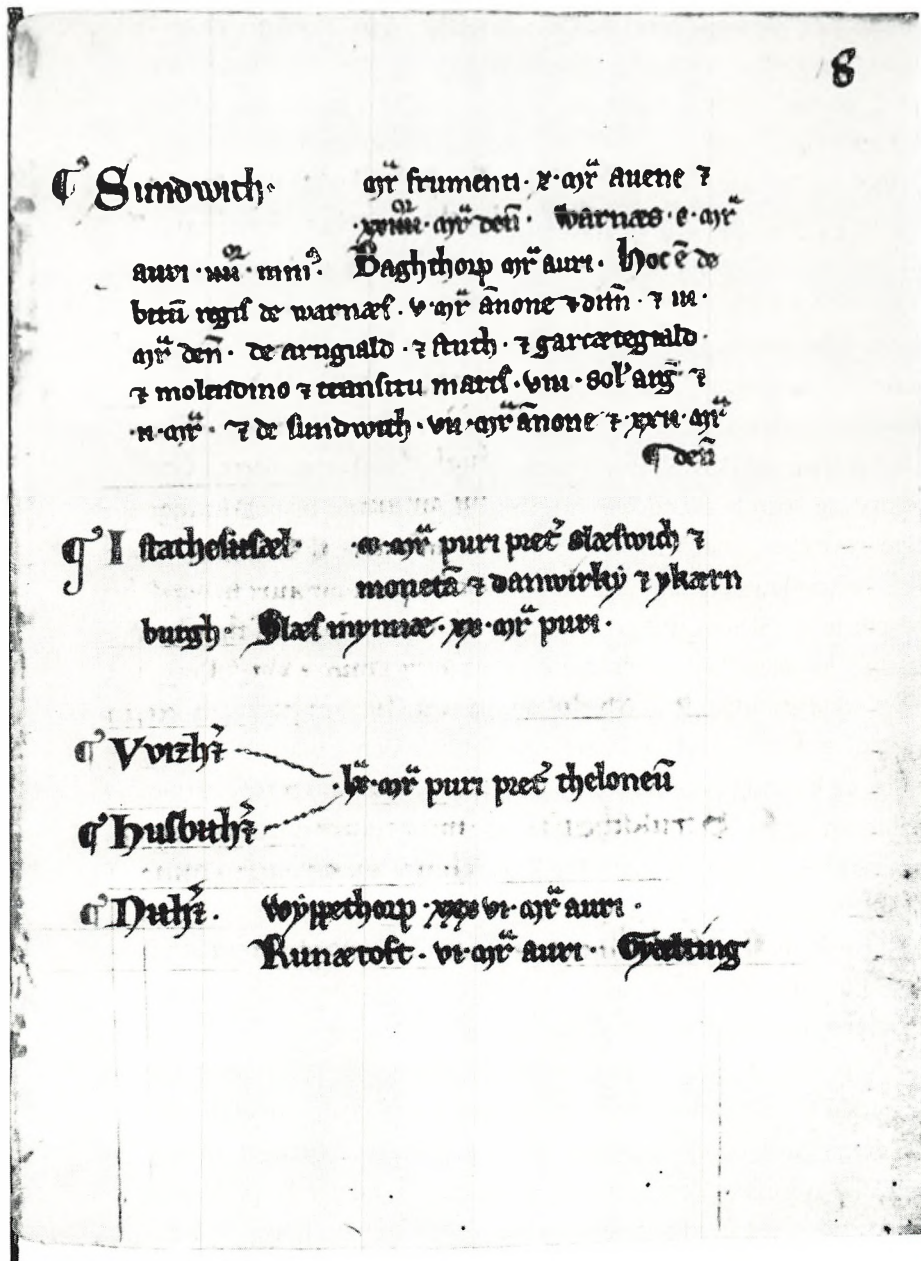 8
¶ Sundwith· mr̄ frumenti · x · mr̄ auene ⁊
· xviiii · mr̄ den̄ · Warnæs · c · mr̄
auri · iiii · min⁹. Daghthorp mr̄ auri · Hoc ē de
bitū regis de warnæs · v · mr̄ an̄one ⁊ dim̄ · ⁊ iii ·
mr̄ den̄ · de arngiald · ⁊ stuth · ⁊ garcætegiald ·
⁊ molendino ⁊ transitu maris · viii · sol' arḡ ⁊
· ii · mr̄ · ⁊ de sundwith · vii · mr̄ an̄one ⁊ · xxii · mr̄
¶ den̄
¶ Istathesusæl · mr̄ puri pret̄ slæswich ⁊
monetā ⁊ danwirky ⁊ ykærn
burgh · Slæs mynnæ · xx · mr̄ puri ·
¶ Vvizhr̄
· lx · mr̄ puri pret̄ theloneū
¶ Husbuhr̄
¶ Nuhr̄ · Wyppethorp · xxxvi · mr̄ auri ·
Runætoft · vi · mr̄ auri · Gyælting